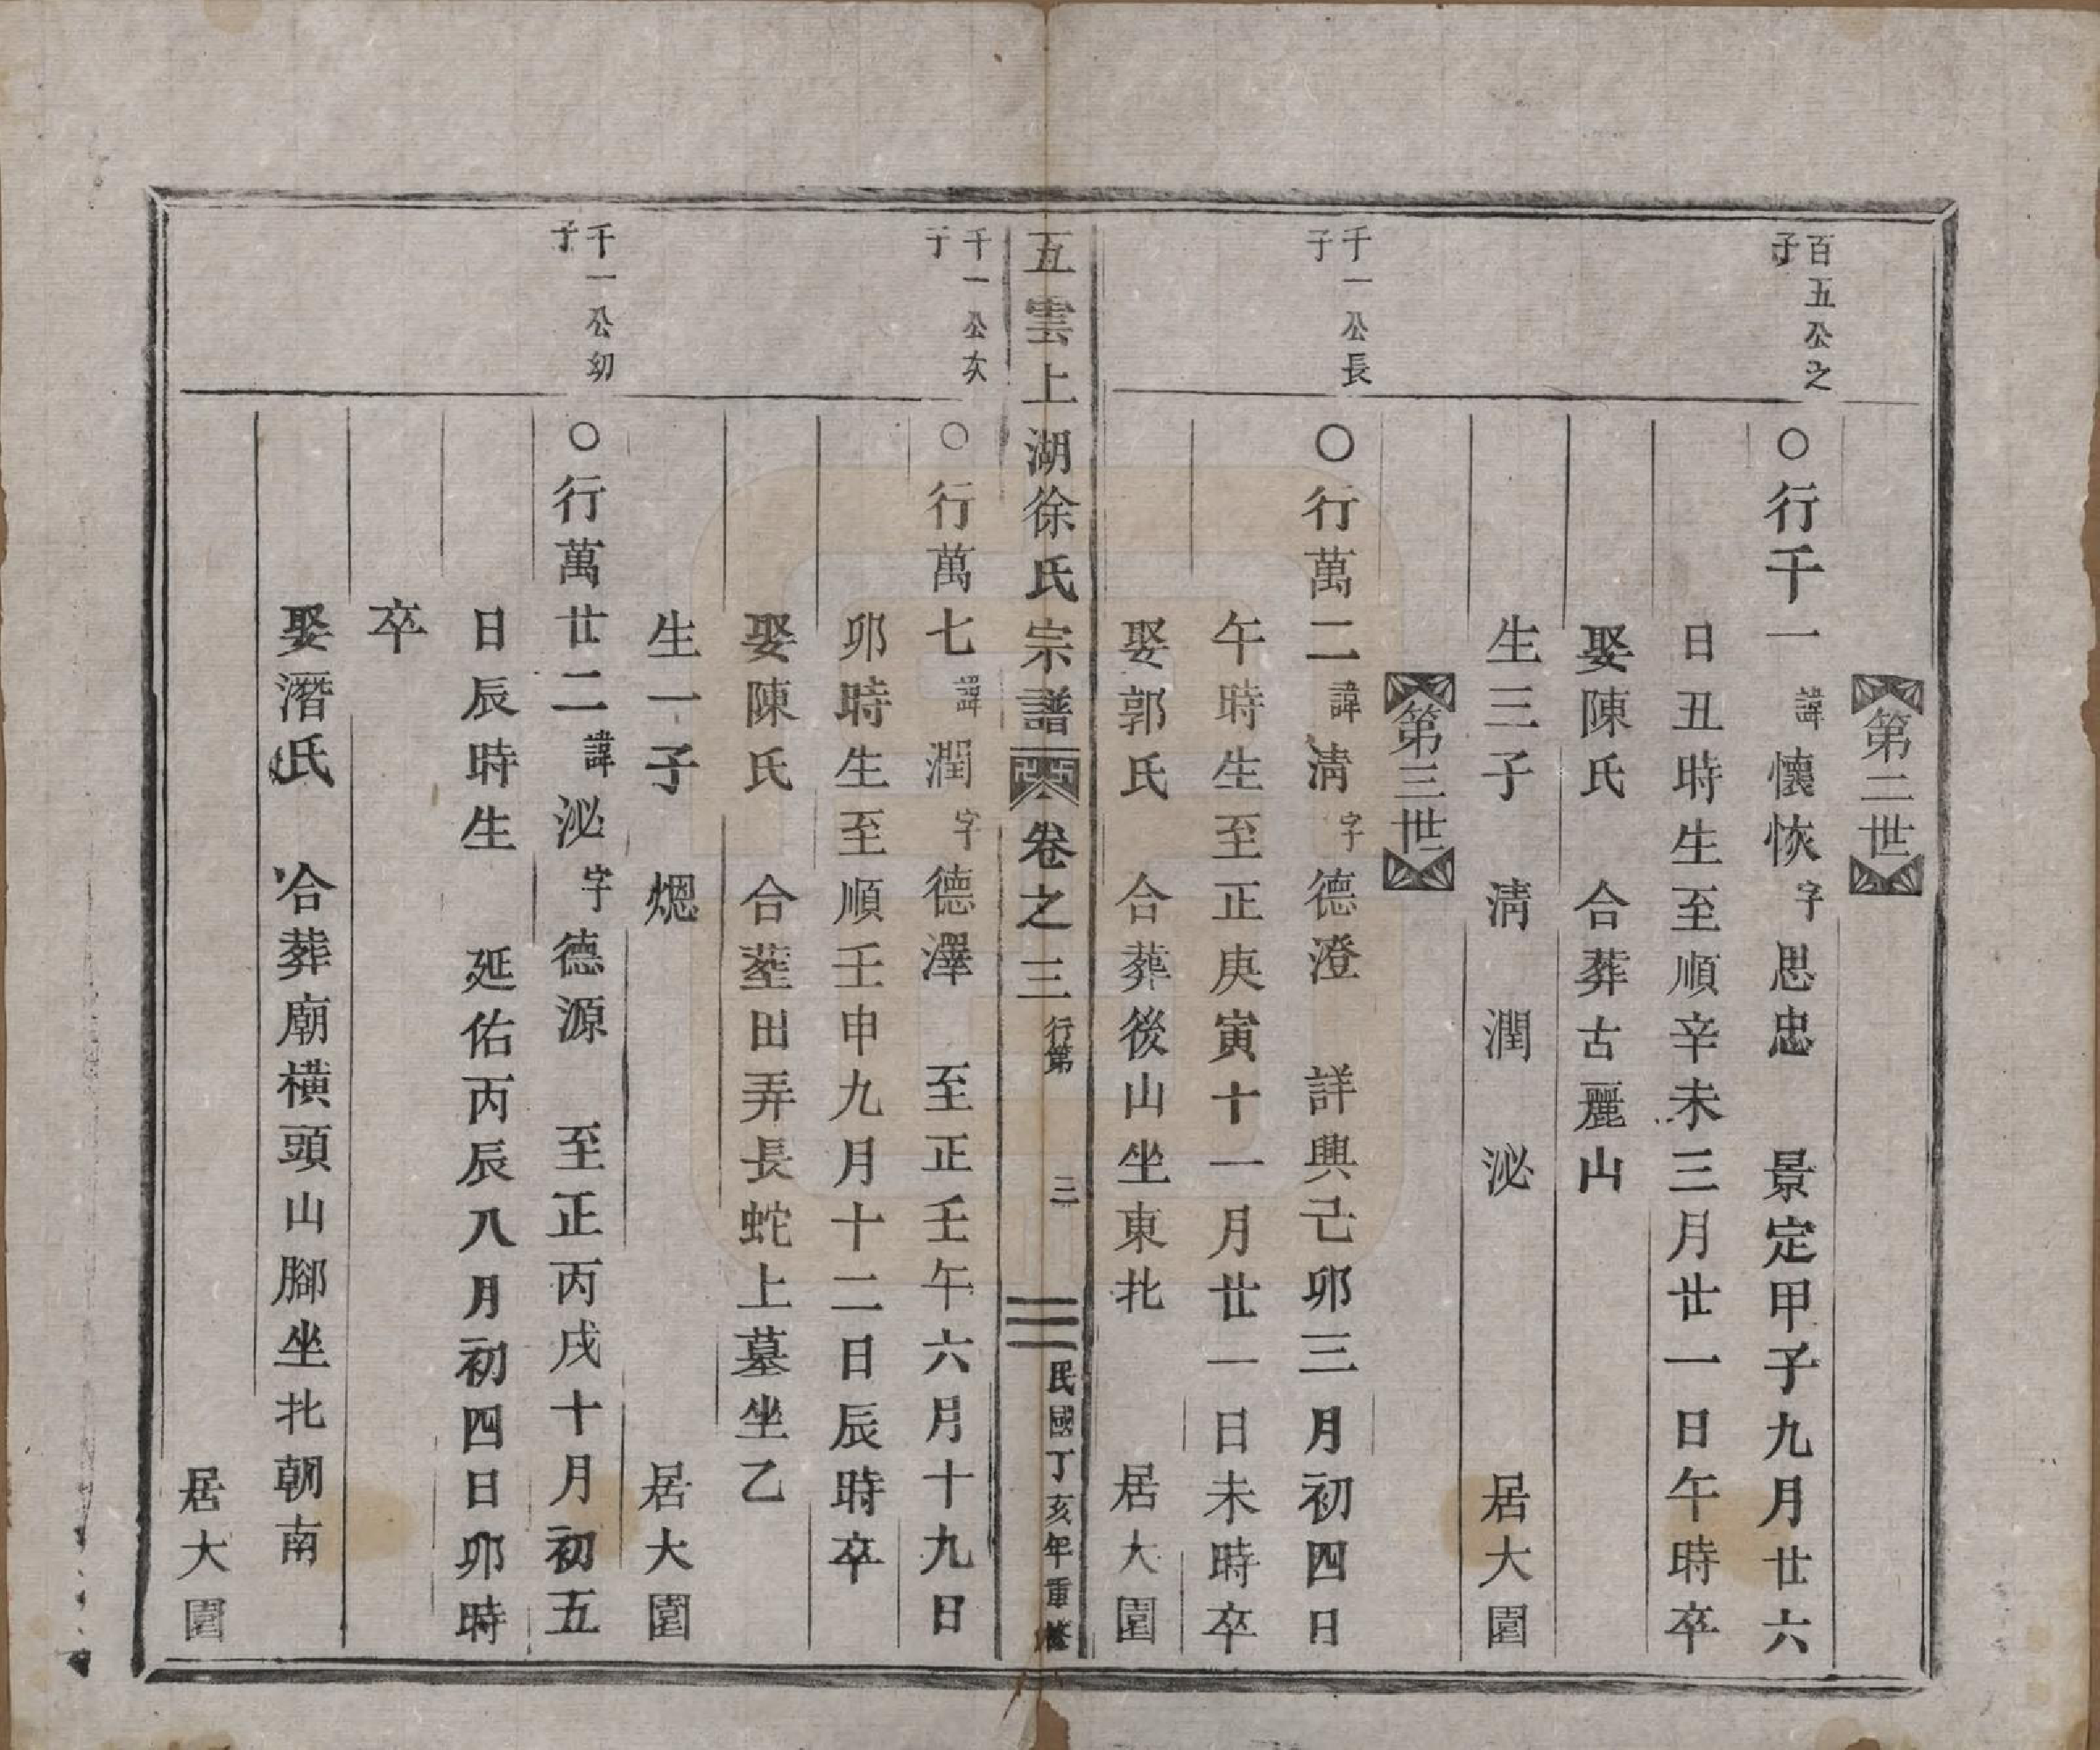 第二世
百五公之子
○行千一諱懷恢字思忠　景定甲子九月廿六
日丑時生至順辛未三月廿一日午時卒
娶陳氏　合葬古麗山
生三子　淸　潤　泌　居大園
第三世
千一公長子
○行萬二諱淸字德澄　詳興己卯三月初四日
午時生至正庚寅十一月廿一日未時卒
娶郭氏　合葬後山坐東北　居大園
五雲上湖徐氏宗譜　卷之三　行第　三　民國丁亥年重修
千一公次子
○行萬七諱潤字德澤　至正壬午六月十九日
卯時生至順壬申九月十二日辰時卒
娶陳氏　合塟田弄長蛇上墓坐乙
生一子　煾　居大園
千一公幼子
○行萬廿二諱泌字德源　至正丙戌十月初五
日辰時生　延佑丙辰八月初四日卯時
卒
娶潛氏　合葬廟橫頭山腳坐北朝南
居大園